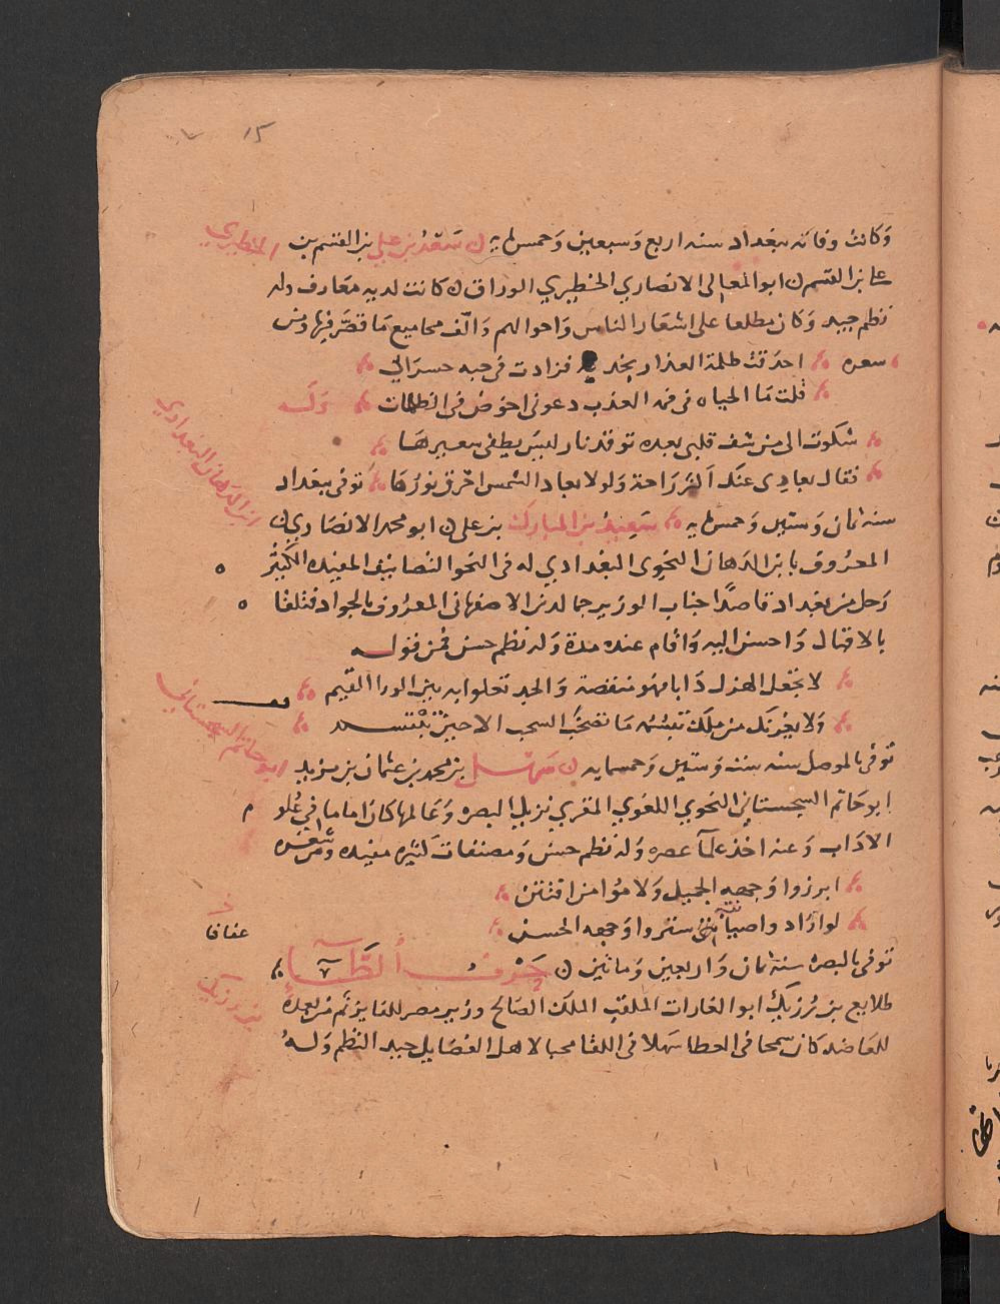 ١٥
وكانت وفاته ببغداد سنه اربع وسبعين وخمسمايه سَعْدُ بن علي بن القسم بن
الحظيري
علي بن القسم ابو المعالي الانصاري الحظيري الوراق كانت لديه معارف وله
نظم جيد وكان مطلعا على اشعار الناس واحوالهم والّف مجاميع ما قصّر فيها ومن
سعره احدقت ظلمة العذار بخد فزادت في حبه حسراتي
قلت ما الحياه في فمه العذب دعوني اخوض في الظلمات وَلَه
شكوت الى من شف قلبي بعده توقد نار ليس يطفى سعيرها
فقال بعادي عنك اكثر راحة ولولا بعاد الشمس احرق نورها توفي ببغداد
ابن الدهان البغدادي
سنه ثمان وستين وخمسمايه سَعِيْدُ بن المبارك بن علي ابو محمد الانصاري
المعروف بابن الدهان النحوي البغدادي له في النحو التصانيف المفيده الكثير
رحل من بغداد قاصدًا جناب الوزير جمال الدين الاصفهاني المعروف بالجواد فتلقا
بالاقبال واحسن اليه واقام عنده مدة وله نظم حسن فمن قوله
لا تجعل الهزل دابا فهو منقصة والجد تعلوا به بين الورا القيم
ولا يغرنك من ملك تبسّمه ما تصخب السحب الا حين تبتسم
ابو حاتم السجستاني
توفي بالموصل سنه ست وستين وخمسمايه سَهْل بن محمد بن عثمان بن يزيد
ابو حاتم السجستاني النحوي اللغوي المقري نزيل البصره وعالمها كان اماما في علو م
الاداب وعنه اخذ علما عصره وله نظم حسن ومصنفات كثيره مفيده ومن شعره
ابرزوا وجهه الجميل ولاموا من افتتن
لو ارادوا صيانتي ستروا وجهه الحسن
عفافا
توفي بالبصره سنه ثمان واربعين وماتين حَرْفُ الطَّآءِ
بن رزيك
طلايع بن رُزيك ابو الغارات الملقب الملك الصالح وزير مصر للفايز ثم من بعده
للعاضد كان سمحا في العطا سهلا في اللقا محبا لاهل الفضايل جيد النظم وله